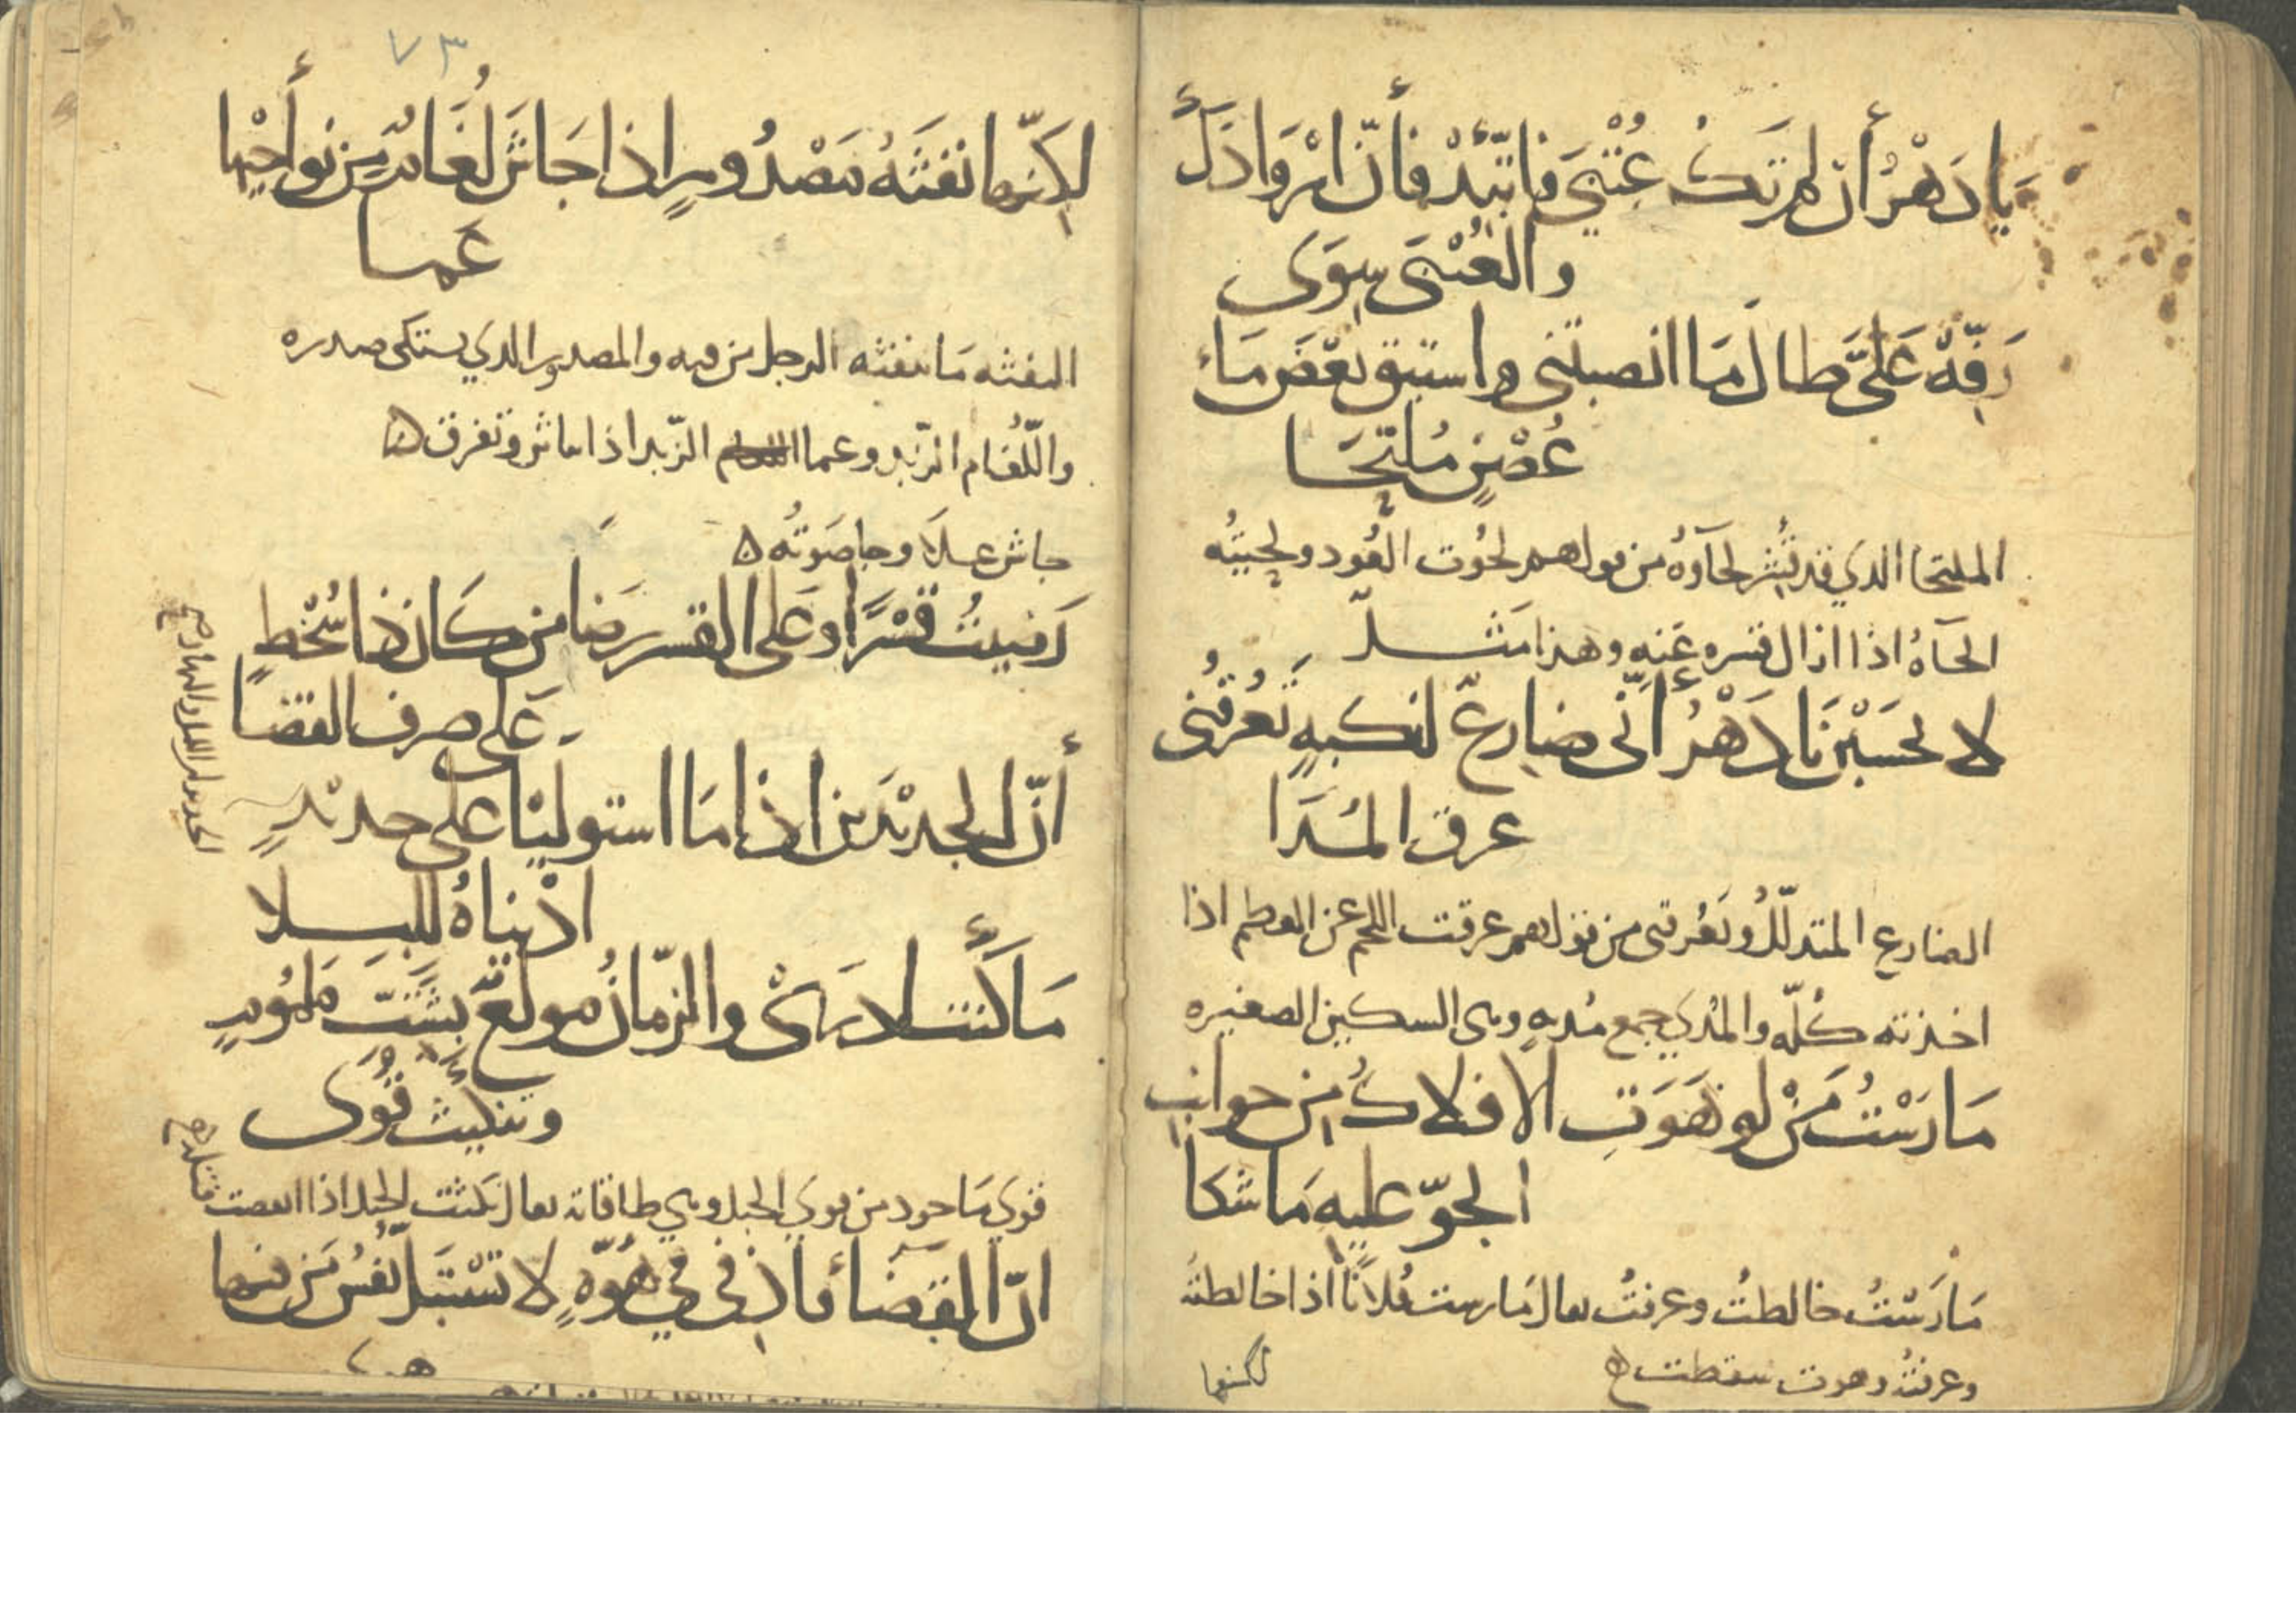 يَا دَهْرُ أن لم تَكُ عُتْبَى فاتَّئِدْ فأنّ ارْوَادَكَ
والعُتْبَى سِوَى
رَفِّهْ عَلَىَّ طا لَ مَا انصبتنى واستبق بَعْضَ مَاءِ
غُصْنٍ مُلتَحَا
الملتحا الذي قد قُشِر لحآوُهُ من قولهم لحُوت العُود ولحيتُه
الحَاهُ اذا ازال قشره عَنه وهذا مَثَل
لا تحسَبْن يَا دَهْرُ أنّى ضارعٌ لنكبهٍ تَعْرُقنى
عرق المُدَا
الضارع المتذلّلُ وتَعُرقنى من قولهم عرقت اللحم عن العظم اذا
اخذته كُلّه والمُدي جمع مُديهٍ وهى السكين الصغيره
مَا رَسْتُ مَنْ لو هَوَتِ الافلاكُ مِن جوانب
الجوّ عليهِ مَا شكا
مَارَسْتُ خالطتُ وعرفتُ يقال مَارست فُلاناً اذا خالطتهُ
وعرفتهُ وهوت سقطت ه
لكنها
٧٣
لكِنّها نَفثَهُ مَصْدُورٍ اذا جَاشَ لُغَامٌ مِن نَواحيْها
عَما
النفثه مَا ينفثه الرجل من فيه والمصدور الذي يشتكى صدره
واللُّغَام الزّبد وعما الزّبد اذا جاش وتفرق ه
جاش علا وجا صَوتُه ه
رَضيتُ قسْرًا وعَلى القسر رِضا من كَان ذا سُخْطٍ
عَلى صرف القضا
أنّ الجديْدَين اذا مَا استوليَا على جديْدٍ
ادْنياهُ للبلا
مَا كُنتُ ادرى والزّمَانُ مولعٌ بشَتّ مَلمُومٍ
وتنكيث قُوَى
قوي مَاخود من قوي الحبل وهي طاقاته يقال نكثت الحبل اذا انقضت
انّ القَضَا قاذفى في هُوّهٍ لا تسْتبَلّ نفْسُ مَن فيها
هوا